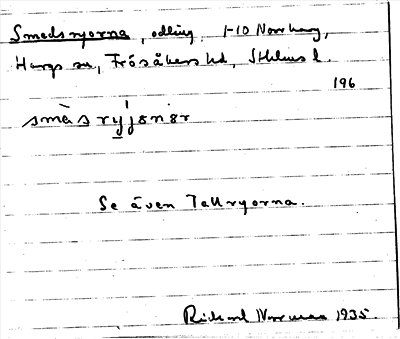 Smedsryorna, odling, 1-10 Norrharg,
Hargs sn, Frösåkers hd, Sthlms l.
196
smàsrýjənər
Se även Tallryorna.
Rickard 1935